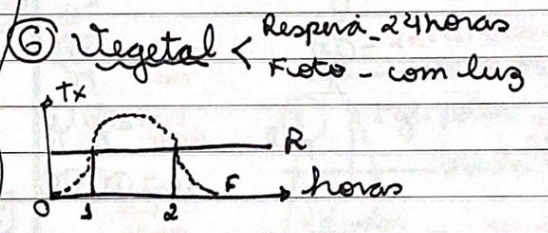 6 Vegetal < Respira - 24 horas
Foto - com luz
Tx
R
F
horas
0 1 2